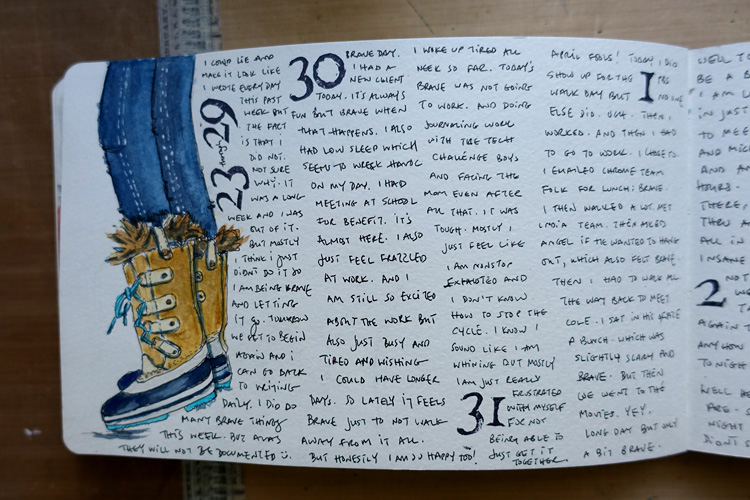 23 through 29
I COULD LIE AND
MAKE IT LOOK LIKE
I WROTE EVERY DAY
THIS PAST
WEEK BUT
THE FACT
IS THAT I
DID NOT.
NOT SURE
WHY. IT
WAS A LONG
WEEK AND I WAS
OUT OF IT.
BUT MOSTLY
I THINK I JUST
DIDN'T DO IT SO
I AM BEING BRAVE
AND LETTING
IT GO. TOMORROW
WE GET TO BEGIN
AGAIN AND I
CAN GO BACK
TO WRITING
DAILY. I DID DO
MANY BRAVE THINGS
THIS WEEK. BUT ALAS
THEY WILL NOT BE DOCUMENTED :).
30
BRAVE DAY.
I HAD A
NEW CLIENT
TODAY. IT'S ALWAYS
FUN BUT BRAVE WHEN
THAT HAPPENS. I ALSO
HAD LOW SLEEP WHICH
SEEMS TO WREAK HAVOC
ON MY DAY. I HAD
MEETING AT SCHOOL
FOR BENEFIT. IT'S
ALMOST HERE. I ALSO
JUST FEEL FRAZZLED
AT WORK. AND I
AM STILL SO EXCITED
ABOUT THE WORK BUT
ALSO JUST BUSY AND
TIRED AND WISHING
I COULD HAVE LONGER
DAYS. SO LATELY IT FEELS
BRAVE JUST TO NOT WALK
AWAY FROM IT ALL.
BUT HONESTLY I AM SO HAPPY TOO!
I WOKE UP TIRED ALL
WEEK SO FAR. TODAY'S
BRAVE WAS NOT GOING
TO WORK. AND DOING
JOURNALING WORK
WITH THE TECH
CHALLENGE BOYS
AND FACING THE
MOM EVEN AFTER
ALL THAT. IT WAS
TOUGH. MOSTLY I
JUST FEEL LIKE
I AM NONSTOP
EXHAUSTED AND
I DON'T KNOW
HOW TO STOP THE
CYCLE. I KNOW I
SOUND LIKE I AM
WHINING BUT MOSTLY
I AM JUST REALLY
31
FRUSTRATED
WITH MYSELF
FOR NOT
BEING ABLE TO
JUST GET IT
TOGETHER.
APRIL FOOLS! TODAY I DID
SHOW UP FOR THE
1
WALK DAY BUT NO ONE
ELSE DID. UGH. THEN I
WORKED. AND THEN I HAD
TO GO TO WORK.
I EMAILED CHROME TEAM
FOLK FOR LUNCH: BRAVE.
I THEN WALKED A LOT. MET
TEAM. THEN ASKED
ANGEL IF HE WANTED TO HANG
OUT, WHICH ALSO FELT BRAVE.
THEN I HAD TO WALK ALL
THE WAY BACK TO MEET
I SAT IN HIS OFFICE
A BUNCH. WHICH WAS
SLIGHTLY SCARY AND
BRAVE. BUT THEN
WE WENT TO THE
MOVIES. YEY.
LONG DAY BUT ONLY
A BIT BRAVE.
WELL TO
BE A B
I AM L
IN JUST
TO MEE
AND MIC
AND A
HOURS.
THERE,
THRU A
ALL IN
INSANE
2
NOT
WE
T
AGAIN
ANYHOW
TONIGHT
WELL
ARE.
NIGHT
DIDN'T